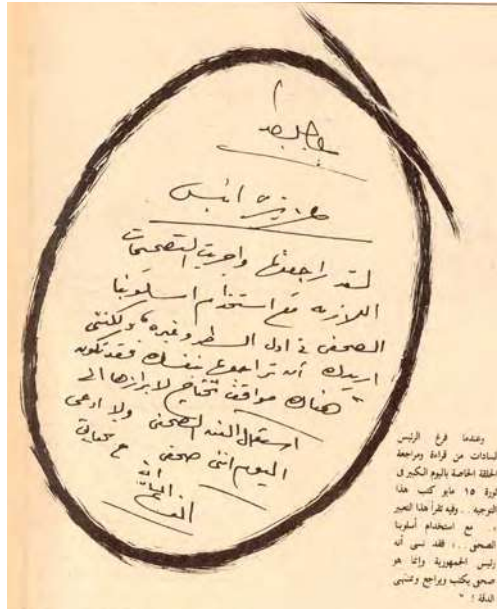 عاجل جدا
عزيزى انيس
لقد راجعتها واجريت التصحيحات
اللازمه مع استخدام اسلوبنا
الصحفى فى اول السطر وغيره، ولكننى
اريدك أن تراجعها بنفسك فقد تكون
هناك مواقف تحتاج لابرازها الى
استعمال الفن الصحفى ولا ادعى
اليوم اننى صحفى مع تحياتى
وعندما فرغ الرئيس
السادات من قراءة ومراجعة
الحلقة الخاصة باليوم الكبير فى
ثورة ١٥ مايو كتب هذا
التوجيه .. وفيه تقرأ هذا التعبير
.. مع استخدام أسلوبنا
الصحفى .. فقد نسى أنه
رئيس الجمهورية وإنما هو
صحفى يكتب ويراجع وبمنتهى
الدقة ! "